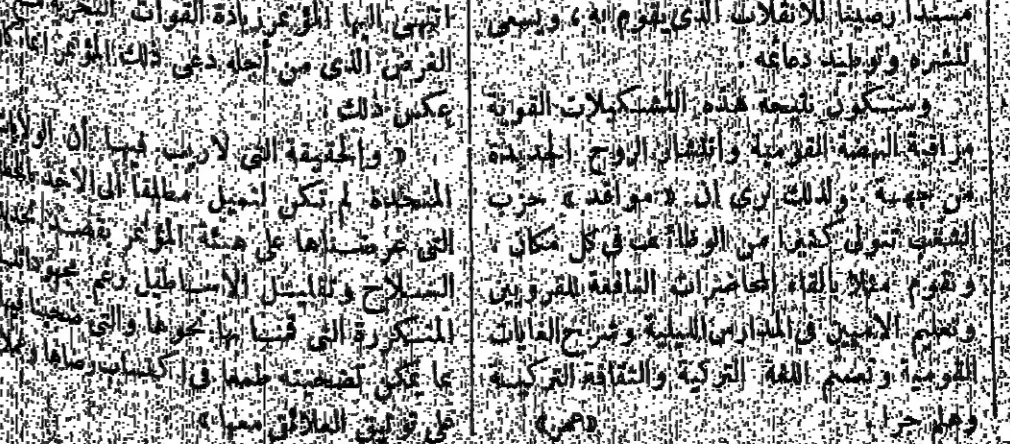 مستندا رصينا للانقلاب الذى يقوم به ، ويسعى
لنشره وتوطيد دعائمه .
وستكون نتيجة هذه التشكيلات القوية
مراقبة النهضة القومية وانتشار الروح الجديدة
من جهة . ولذلك نرى ان « مواقد » حزب
الشعب تتولى كثيرا من الوظائف فى كل مكان ،
وتقوم مثلا بالقاء المحاضرات النافعة للقرويين
وتعليم الاميين فى المدارس الليلية وشرح الغايات
القومية وتعميم اللغة التركية والثقافة التركية
وهلم جرا .
انتهى اليها المؤتمر زيادة القوات البحرية
الغرض الذى من أجله دعى ذلك المؤتمر انما كان
عكس ذلك .
« والحقيقة التى لا ريب فيها أن الولايات
المتحدة لم تكن لتميل مطلقا الى الاخذ
التى عرضناها على هيئة المؤتمر بقصد تحديد
السلاح وتقليل الاساطيل رغم مجهوداتنا
المتكررة التى قمنا بها نحوها والتى
بما يمكن تضحيته طمعا فى اكتساب رضاها
على توثيق العلائق معها »